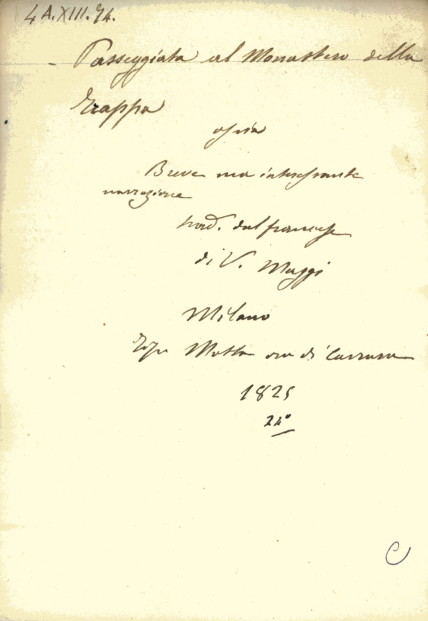 4 A.XIII.74.
Passeggiata al Monastero della
Trappa
ossia
Breve ma interessante
narrazione
trad. dal francese
di V. Maggi
Milano
Tip. Motta ora di Carrara
1825
24°
C